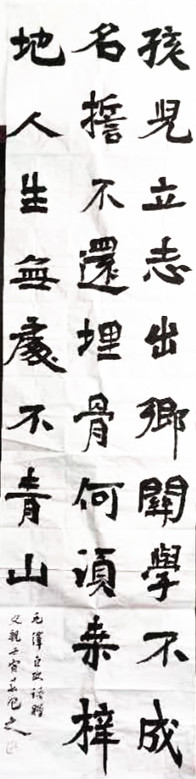 孩兒立志出鄉關學不成
名誓不還埋骨何須桑梓
地人生無處不青山
毛澤東改詩贈
父親壬寅